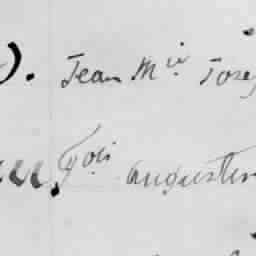 ). Jean Mie Jose
fois augustin